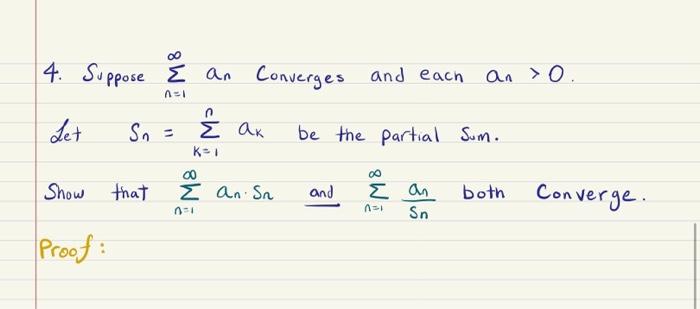 4. Suppose ∞ Σ n=1 an Converges and each an > 0.
Let Sn = n Σ K=1 aK be the partial Sum.
Show that ∞ Σ n=1 an · Sn and ∞ Σ n=1 an/Sn both Converge.
Proof: